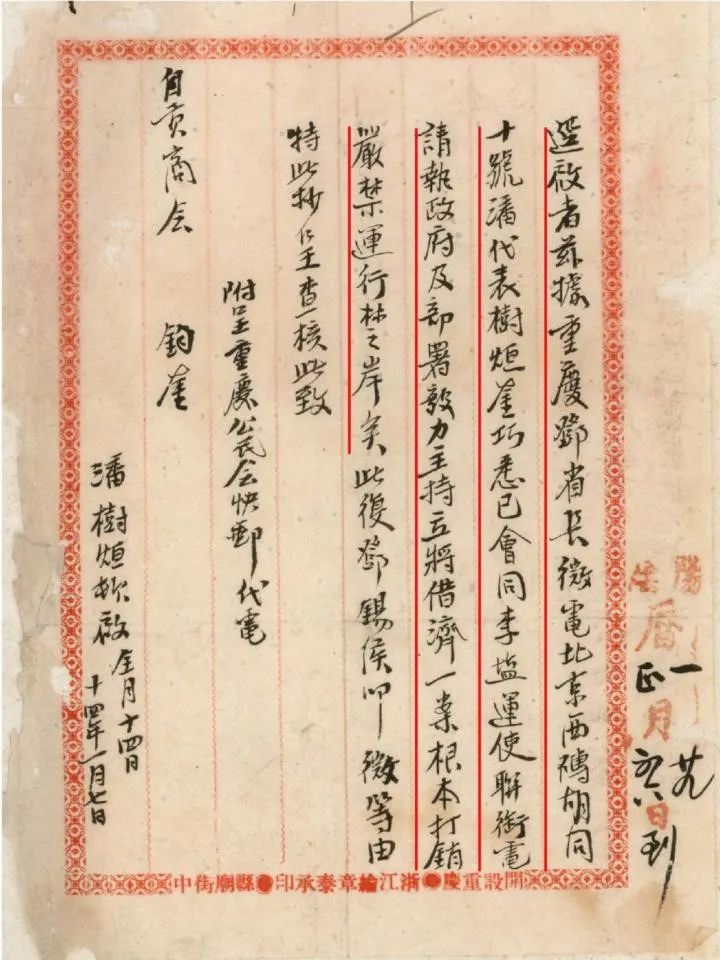 逕啟者茲據重慶鄧省長微電北京西磚胡同
十號潘代表樹烜鑒巧悉已會同李塩運使聯銜電
請執政府及部署毅力主持立將借濟一案根本打銷
嚴禁運行楚岸矣此復鄧錫侯叩微等由
特此抄呈查核此致
附呈重慶公民會快郵代電
自貢商会 鈞鑒
潘樹烜 啟 全月十四日
十四年一月七日
陽陰
曆一正月 日到
開設重慶 浙江綸章泰承印 縣廟街中